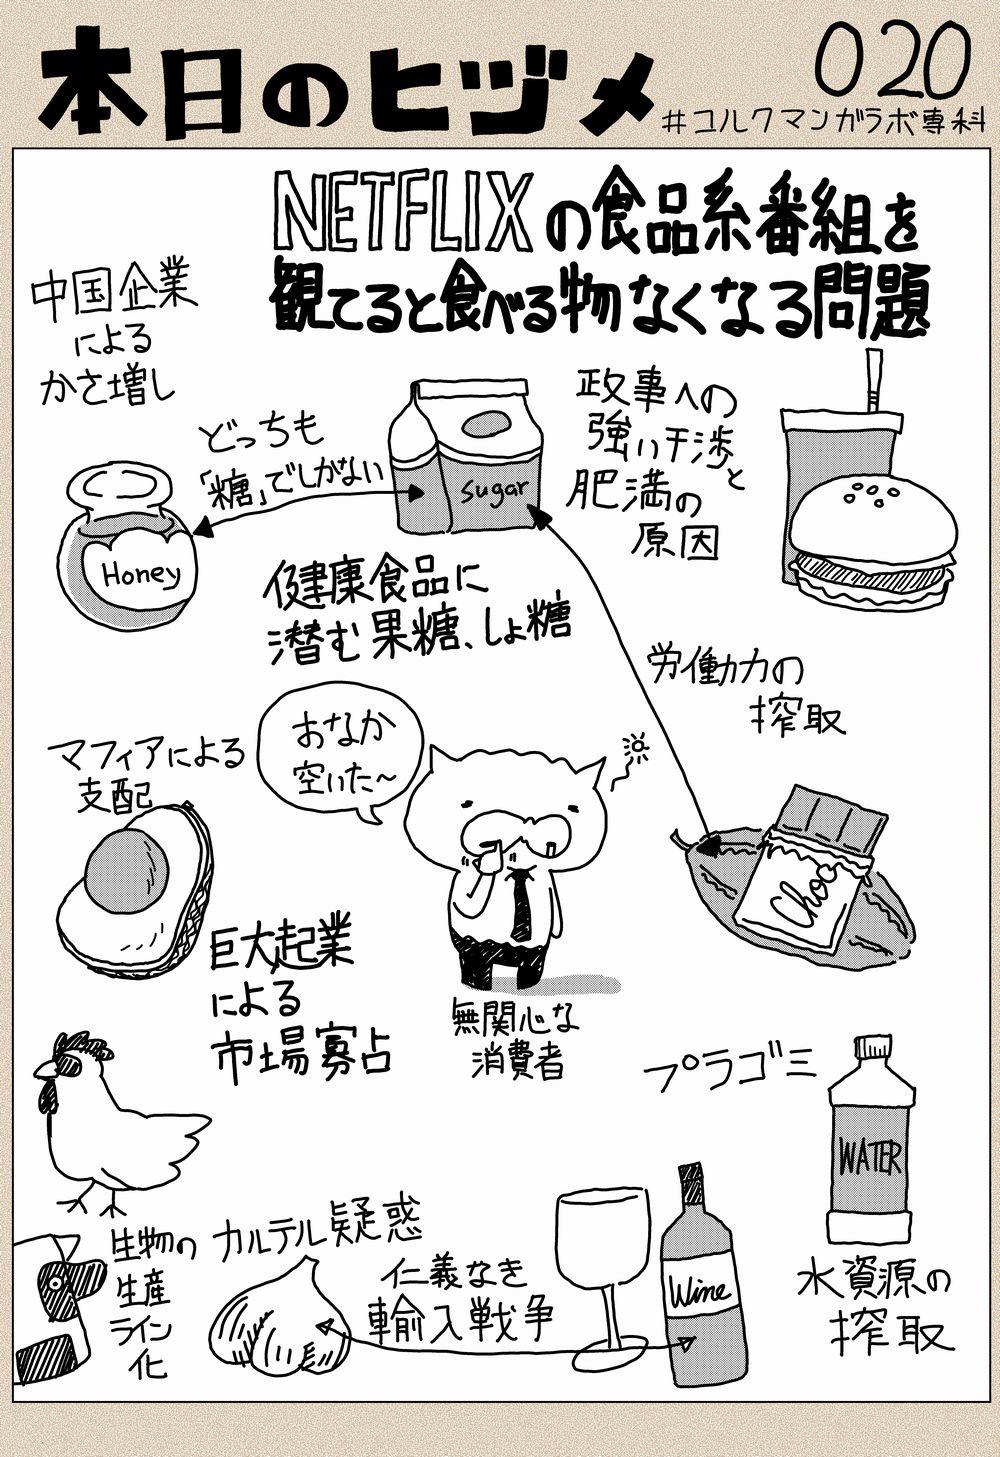 本日のヒヅメ
020
#コルクマンガラボ専科
NETFLIXの食品系番組を
観てると食べる物なくなる問題
中国企業
による
かさ増し
どっちも
「糖」でしかない
sugar
Honey
政事への
強い干渉と
肥満の
原因
健康食品に
潜む果糖、しょ糖
労働力の
搾取
マフィアによる
支配
おなか
空いた〜
Choco
巨大起業
による
市場寡占
無関心な
消費者
プラゴミ
WATER
生物の
生産
ライン
化
カルテル疑惑
仁義なき
輸入戦争
Wine
水資源の
搾取